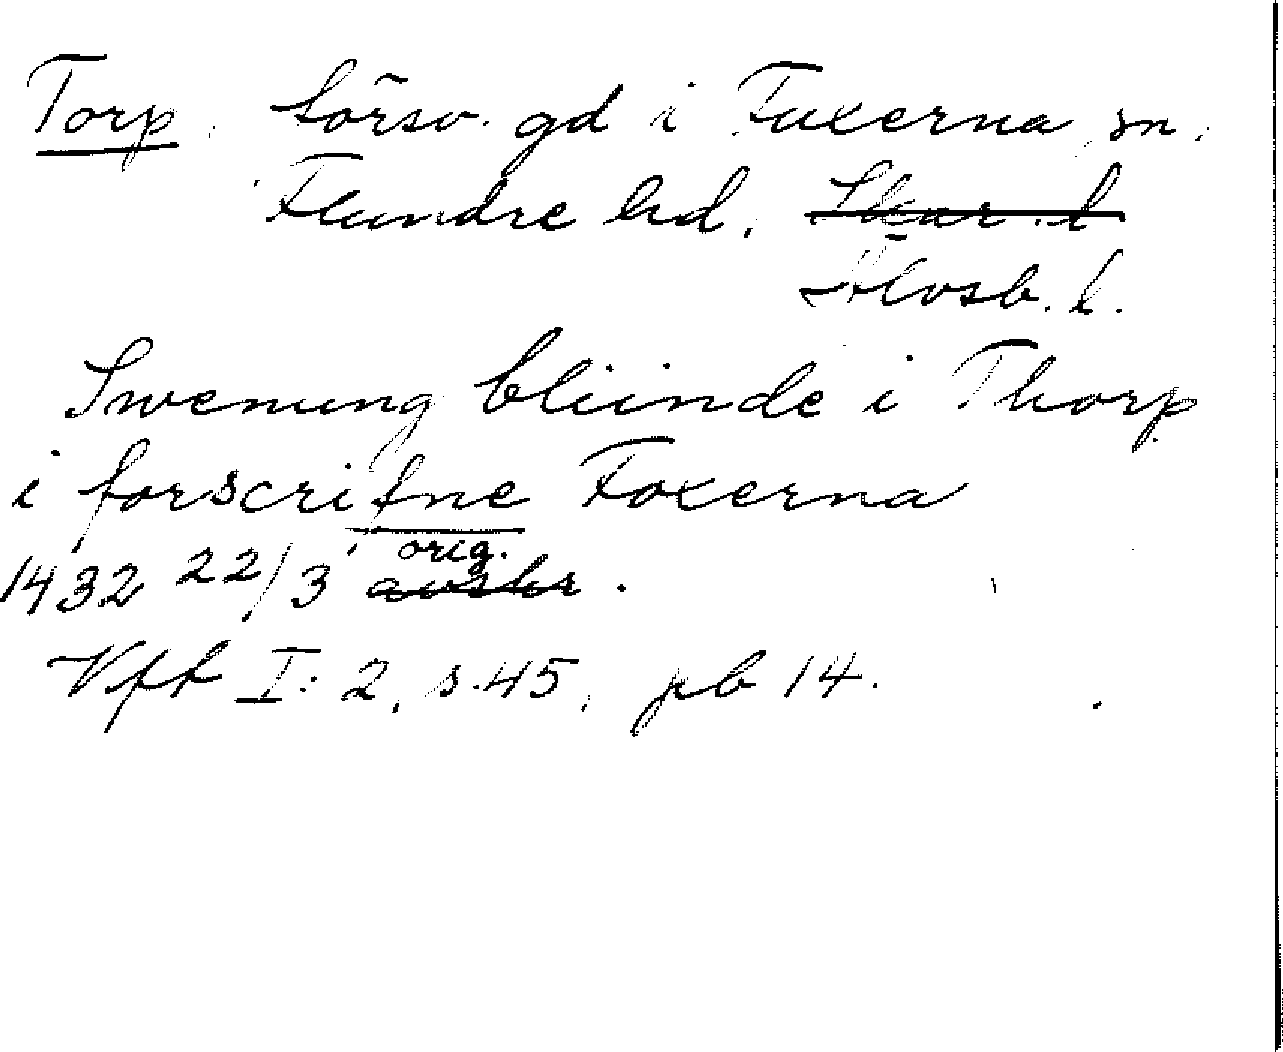 Torp. försv. gd i Fuxerna sn.
Flundre hd. Skar. l
Älvsb. l.
Swenung bliinde i Thorp
i forscrifne Foxerna
orig.
1432 22/3 avskr.
Vff I: 2, s. 45, pb 14.